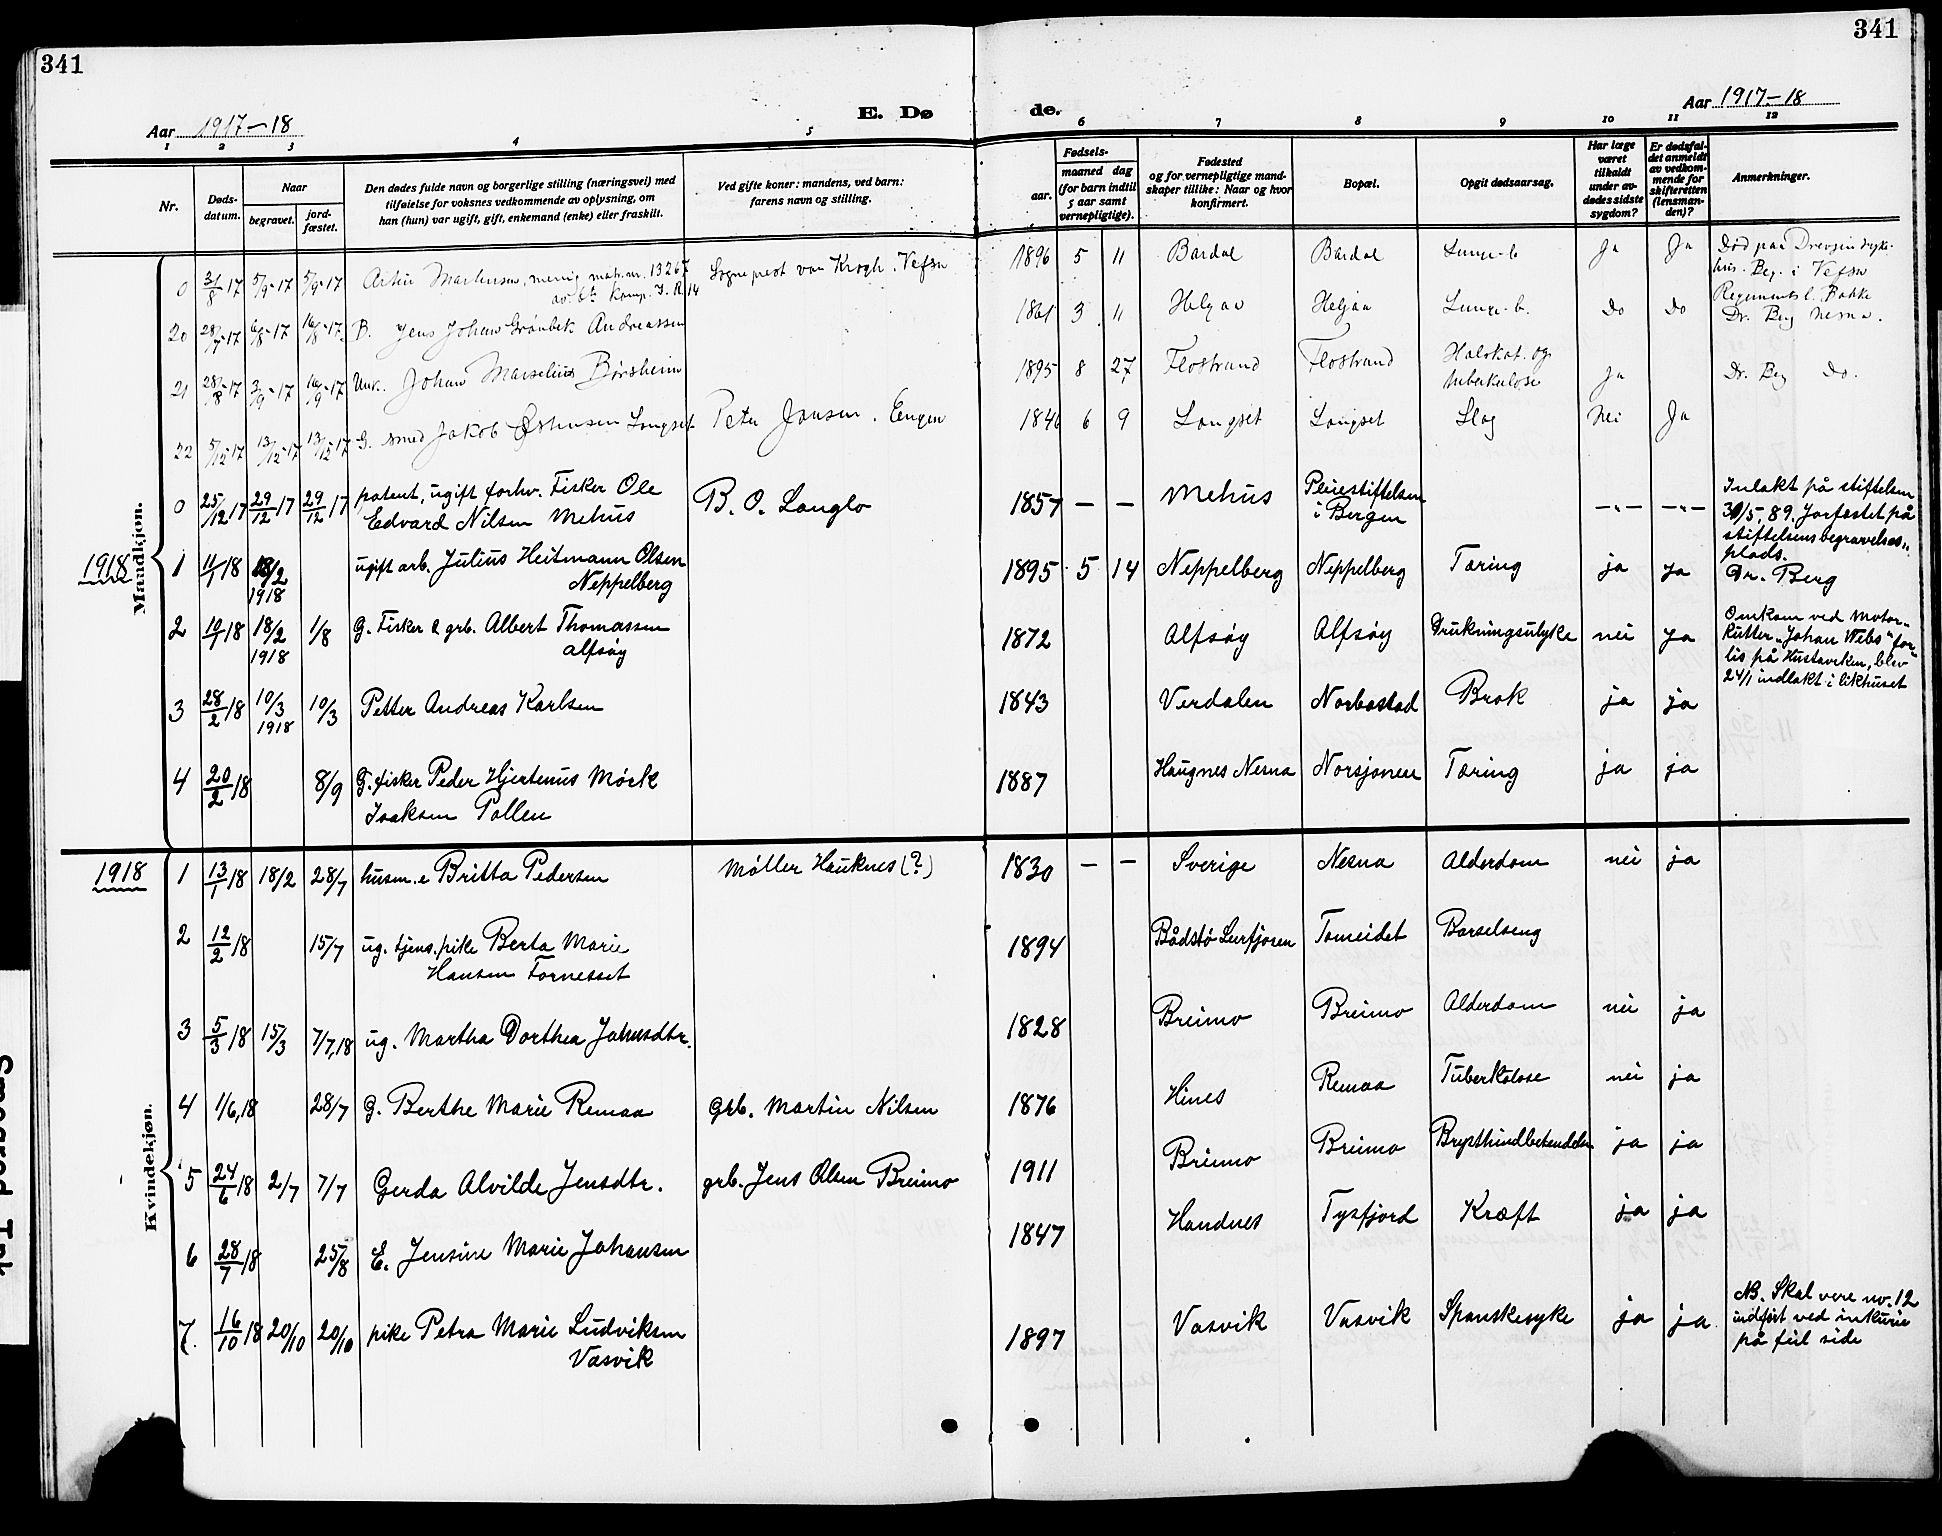 341
341
Aar 1917-18
E. Dø
de.
Aar 1917-18
1 2 3 4 5 6 7 8 9 10 11 12
Nr.
Døds-
datum.
Naar
begravet.
jord-
fæstet.
Den dødes fulde navn og borgerlige stilling (næringsvei) med
tilføielse for voksnes vedkommende av oplysning, om
han (hun) var ugift, gift, enkemand (enke) eller fraskilt.
Ved gifte koner: mandens, ved barn:
farens navn og stilling.
Fødsels-
aar.
maaned dag
(for barn indtil
5 aar samt
vernepligtige).
Fødested
og for vernepligtige mand-
skaper tillike: Naar og hvor
konfirmert.
Bopæl.
Opgit dødsaarsag.
Har læge
været
tilkaldt
under av-
dødes sidste
sygdom?
Er dødsfal-
det anmeldt
av vedkom-
mende for
skifteretten
(lensman-
den)?
Anmerkninger.
Mandkjøn.
0 31/8 17 5/9-17 5/9-17 Martensen, menig matr. nr. 13267
av 6te Komp. I. R. 14
Sogneprest von Krogh. Vefsn
1896 5 11 Bardal Bardal Lunge-b. Ja Ja Død paa
Bg. i Vefsn
20 28/7-17 6/8-17 16/8-17 B. Jens Johan Grønbek Andreassen
1861 3 11 Helgaa Helgaa Lunge-b. Do Do
Dr. Berg Nesna.
21 28/8-17 3/9-17 16/9-17 Unk. Johan Marselius Børsheim
1895 8 27 Flostrand Flostrand Halskat. og
tuberkulose Ja Dr. Berg Do.
22 5/12-17 13/12-17 13/12-17 G. smed Jakob Østensen Langset Peter Jansen. Engen
1846 6 9 Langset Langset Slag Nei Ja
0 25/12 17 29/12 17 29/12 17 patent, ugift forhv. Fisker Ole
Edvard Nilsen Mehus
B. O. Langlo
1857 — — Mehus Pleiestiftelsen
i Bergen —"— —"—
Inlakt på stiftelsen
30/5, 89. Jorfæstet på
stiftelsens begravelses-
plads.
1918
1 11/1 18 18/2
1918
ugift arb. Julius Heitmann Olsen
Neppelberg
1895 5 14 Neppelberg Neppelberg Tæring ja ja Dr. Berg
2 10/1 18 18/2
1918
1/8 G. Fisker & grb. Albert Thomassen
Alfsøy
1872 Alfsøy Alfsøy Drukningsulyke nei ja
Omkom ved Motor-
kutter „Johan Webs" for-
lis på Hustaviken, blev
24/1 indlakt i likhuset
3 28/2 18 10/3
1918
10/3 Petter Andreas Karlsen
1843 Verdalen Norbostad Brok ja ja
4 20/2 18 8/9 G. fisker Peder Hjertenus Mørk
Isaksen Pollen
1887 Haugnes Nesna Norsjonen Tæring ja ja
Kvindekjøn.
1918
1 13/1 18 18/2 28/7 husm. e Britta Pedersen Møller Hauknes (?)
1830 — — Sverige Nesna Alderdom nei ja
2 12/2 18 15/7 ug. tjens. pike Berta Marie
Hansen Fornesset
1894 Bådstø Leirfjoren Tomeidet Barselseng
3 5/3 18 15/3 7/7, 18 ug. Martha Dorthea Johnsdtr.
1828 Breimo Breimo Alderdom nei ja
4 1/6, 18 28/7 G. Berthe Marie Remaa grb. Martin Nilsen
1876 Hines Remaa Tuberkolose nei ja
5 24/6 18 2/7 7/7 Gerda Alvilde Jensdtr. grb. Jens Olsen Breimo
1911 Breimo Breimo Brysthindbetendelse ja ja
6 28/7 18 25/8 E. Jensine Marie Johansen
1847 Handnes Tysfjord Kræft ja ja
7. 16/10 18 20/10 20/10 pike Petra Marie Ludviksen
Vasvik
1897 Vasvik Vasvik Spanskesyke ja ja
NB. Skal vere nr. 12
indført ved inkurie
på feil side